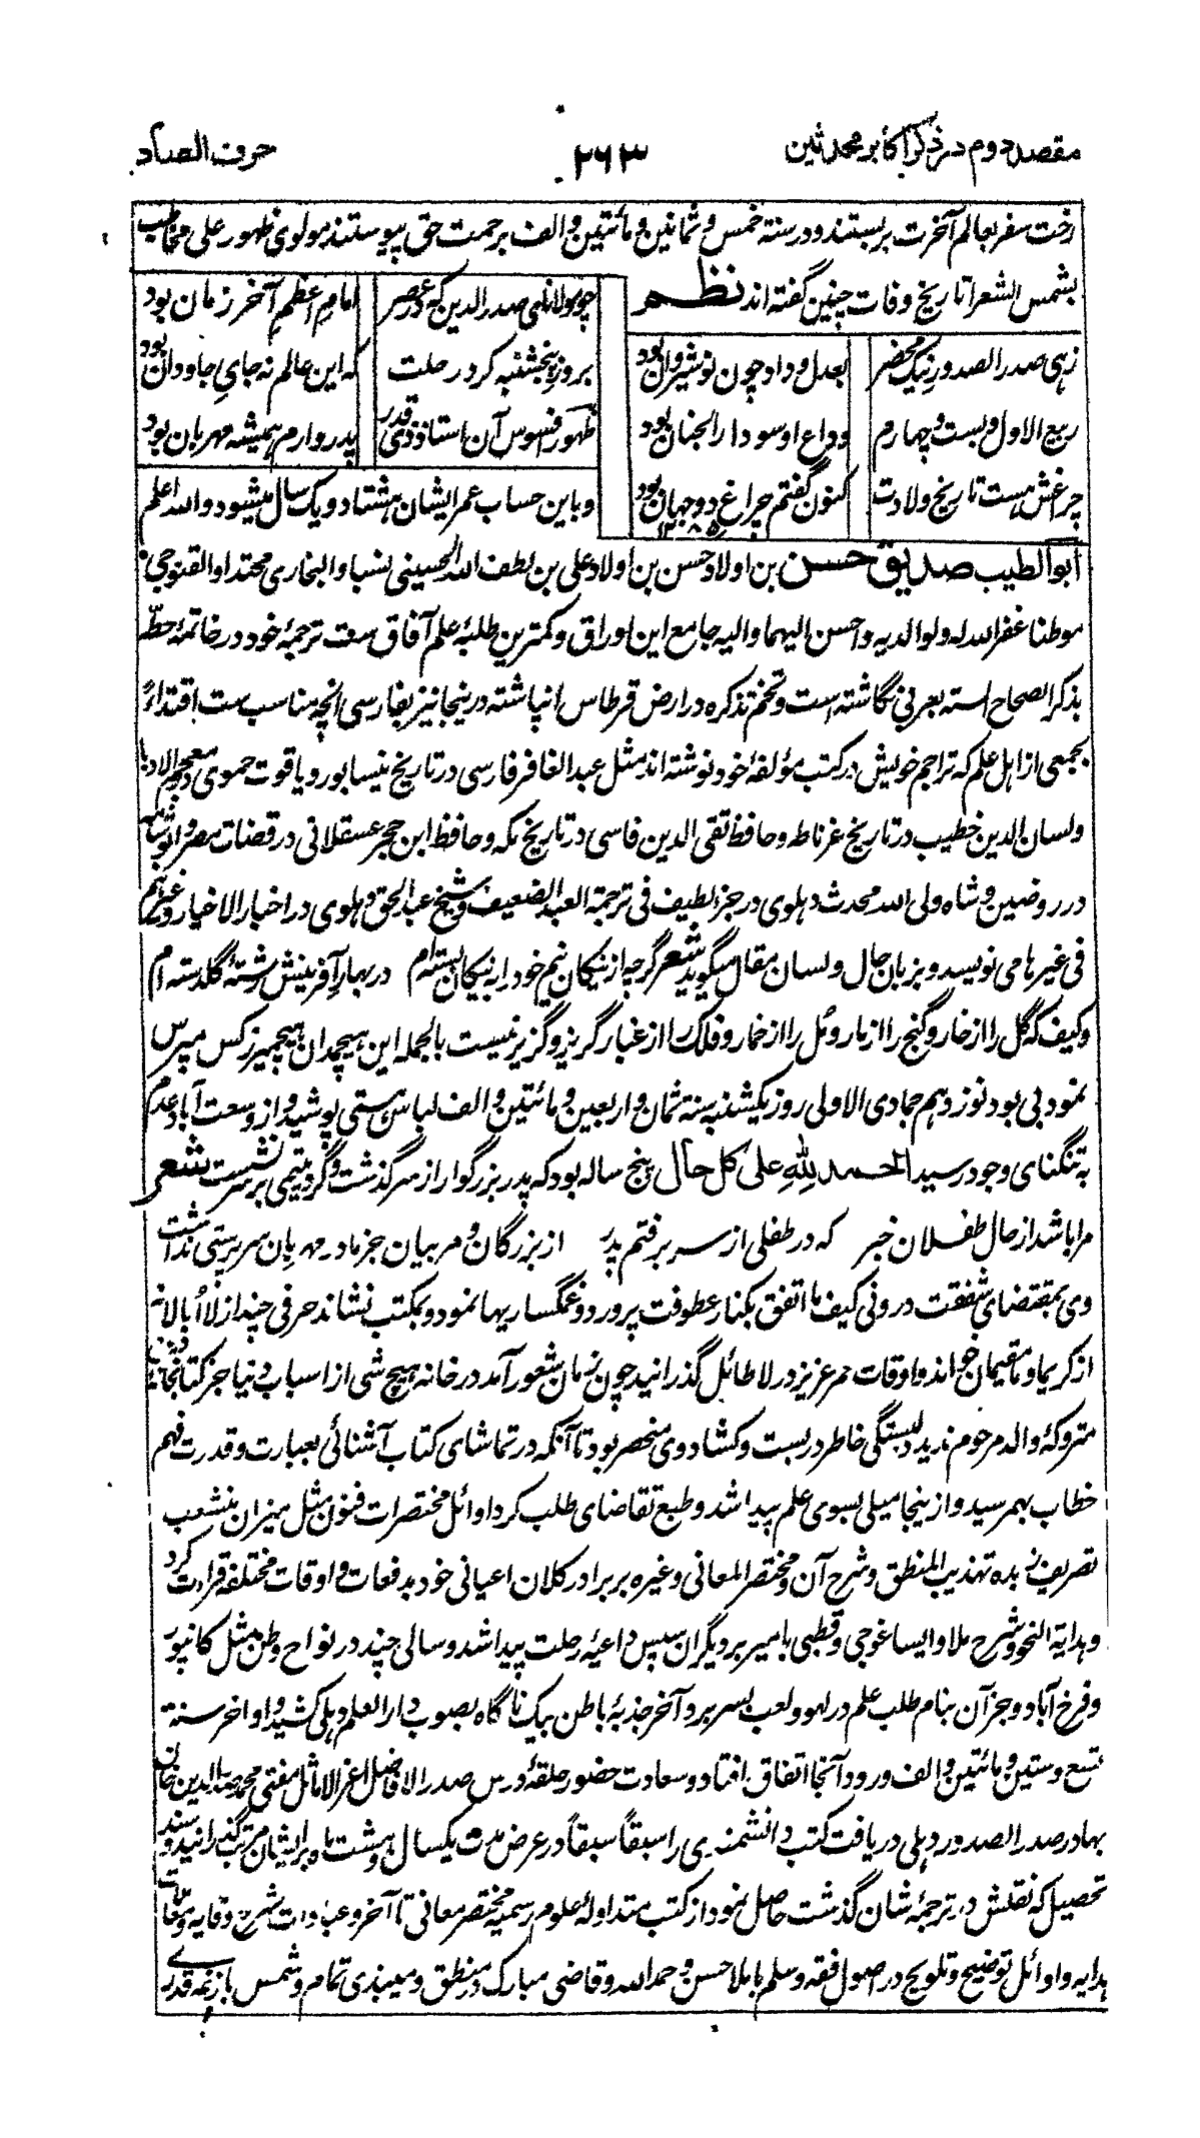 مقصد دوم در ذکر اکابر محدثین
۲۶۳
حرف الصاد
رخت سفر بعالم آخرت بربستند و در سنة خمس و ثمانین و مائتین و الف برحمت حق پیوستند مولوی ظهور علی مخاطب
بشمس الشعرا تاریخ وفات چنین گفته اند نظم
چو مولانای صدر الدین که در عصر
امام اعظم آخر زمان بود
زهی صدر الصدور نیک محضر
بعدل و داد چون نوشیروان بود
بروز پنجشنبه کرد رحلت
که این عالم نه جای جاودان بود
ربیع الاول و بست و چهارم
وداع او سوی دار الجنان بود
ظهور افسوس آن استاذ ذی قدر
پدر وارم همیشه مهربان بود
چراغش هست تاریخ ولادت
کنون گفتم چراغ دو جهان بود
۱۲۸۵
و باین حساب عمر ایشان هشتاد و یک سال میشود و الله اعلم
ابو الطیب صدیق حسن بن اولاد حسن بن اولاد علی بن لطف الله الحسینی نسبا و البخاری محتدا و القنوجی
موطنا غفر الله له و لوالدیه و احسن الیهما و الیه جامع این اوراق و کمترین طلبۀ علم آفاق ست ترجمۀ خود در خاتمۀ حطّه
بذکر الصحاح الستة بعربی نگاشته است و تخم تذکره در ارض قرطاس انباشته درینجا نیز بفارسی انچه مناسب ست اقتداءً
بجمعی از اهل علم که تراجم خویش در کتب مؤلفۀ خود نوشته اند مثل عبد الغافر فارسی در تاریخ نیسابور و یاقوت حموی در معجم الادبا
و لسان الدین خطیب در تاریخ غرناطه و حافظ تقی الدین فاسی در تاریخ مکه و حافظ ابن حجر عسقلانی در قضات مصر و ابو شامه
در روضتین و شاه ولی الله محدث دهلوی در جزء لطیف فی ترجمة العبد الضعیف و شیخ عبد الحق دهلوی در اخبار الاخیار و غیرهم
فی غیرها می نویسد و بزبان حال و لسان مقال میگوید شعر گرچه از نیکان نیم خود را به نیکان بسته ام در بهار آفرینش رشتۀ گلدسته ام
و کیف که گل را از خار و گنج را از مار و مُل را از خمار و فلک را از غبار گریز و گزیر نیست بالجمله این هیچمدان هیچمیرز کس مپرس
نمود بی بود نوزدهم جمادی الاولی روز یکشنبه سنة ثمان و اربعین و مائتین و الف لباس هستی پوشید و از وسعت آباد عدم
به تنگنای وجود رسید الحمد لله علی کل حال پنج ساله بود که پدر بزرگوار از سر گذشت و گرد یتیمی بر سر نشست شعر
مرا باشد از حال طفلان خبر که در طفلی از سر برفتم پدر از بزرگان و مربیان جز مادر مهربان سرپرستی نداشت
وی بمقتضای شفقت درونی کیف ما اتفق بکنار عطوفت پرورد و غمگساریها نمود و بمکتب نشاند حرفی چند از
از کریما و مامقیمان خواند و اوقات عمر عزیز در لا طائل گذرانید چون زمان شعور آمد در خانه هیچ شی از اسباب دنیا جز کتابخانه
متروکۀ والد مرحوم ندید دلبستگی خاطر در بست و کشاد وی منحصر بود تا آنکه در تماشای کتاب آشنائی بعبارت و قدرت فهم
خطاب بهمرسید و از ینجا میلی بسوی علم پیدا شد و طبع تقاضای طلب کرد اوائل مختصرات فنون مثل میزان منشعب
تصریف زبده تهذیب المنطق و شرح آن و مختصر المعانی و غیره بر برادر کلان اعیانی خود بدفعات و اوقات مختلفه قراءت کرد
و هدایة النحو و شرح ملا و ایساغوجی و قطبی با میر بر دیگران سپس داعیۀ رحلت پیدا شد و سالی چند در نواح وطن مثل کانپور
و فرخ آباد و جز آن بنام طلب علم در لهو و لعب بسر برد آخر جذبۀ باطن بیک ناگاه بصوب دار العلم دهلی کشید و اواخر سنة
تسع و ستین و مائتین و الف ورود آنجا اتفاق افتاد و سعادت حضور حلقۀ درس صدر الافاضل اغر الاماثل مفتی محمد صدر الدین خان
بهادر صدر الصدور دهلی دریافت کتب دانشمندی را سبقاً سبقاً در عرض مدت یکسال و هشت ماه بر ایشان مرتب گذرانید و سند
تحصیل که نقلش در ترجمۀ شان گذشت حاصل نمود از کتب متداولۀ علوم رسمیه مختصر معانی تا آخر و عبادات شرح وقایه و معاملات
هدایه و اوائل توضیح و تلویح در اصول فقه و سلم با ملا حسن و حمد الله و قاضی مبارک در منطق و میبذی تمام و شمس بازغه قدری